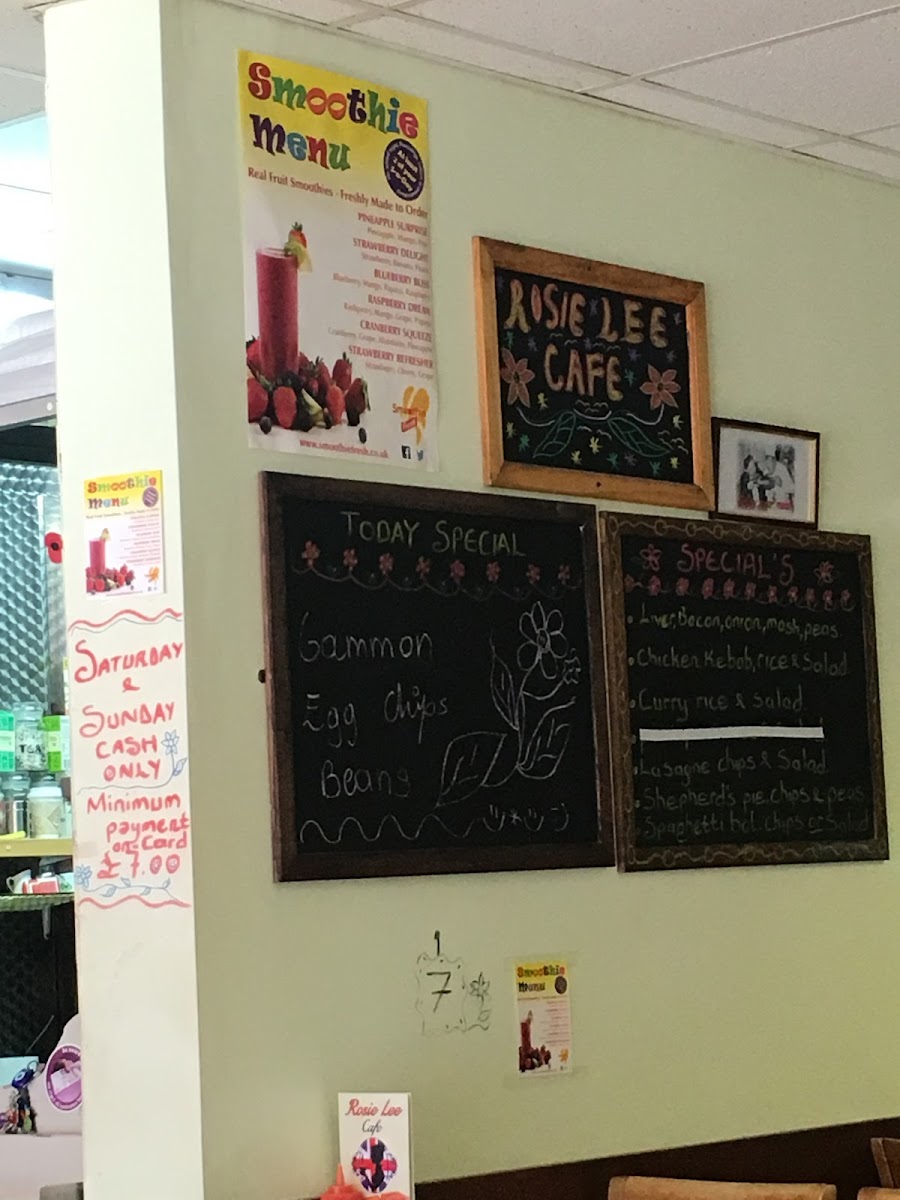 Smoothie
Menu
At least
2 of your
5-a-Day
Real Fruit Smoothies - Freshly Made to Order
PINEAPPLE SURPRISE
Pineapple, Mango,
STRAWBERRY DELIGHT
Strawberry, Banana,
BLUEBERRY BLISS
Blueberry, Mango, Papaya, Raspberry
RASPBERRY DREAM
Raspberry, Mango, Grape, Papaya
CRANBERRY SQUEEZE
Cranberry, Grape, Blueberry, Pineapple
STRAWBERRY REFRESHER
Strawberry, Cherry, Grape
www.smoothiefresh.co.uk
ROSIE LEE
CAFE
TODAY SPECIAL
Gammon
Egg Chips
Beans
SPECIAL'S
Liver, Bacon, onion, mash, peas
Chicken Kebab, rice & Salad
Curry rice & Salad
Lasagne chips & Salad
Shepherd's pie, chips & peas
Spaghetti bol. chips or Salad
Smoothie
Menu
SATURDAY
&
SUNDAY
CASH
ONLY
Minimum
payment
on Card
£7.00
TEA
7
Smoothie
Menu
Rosie Lee
Cafe